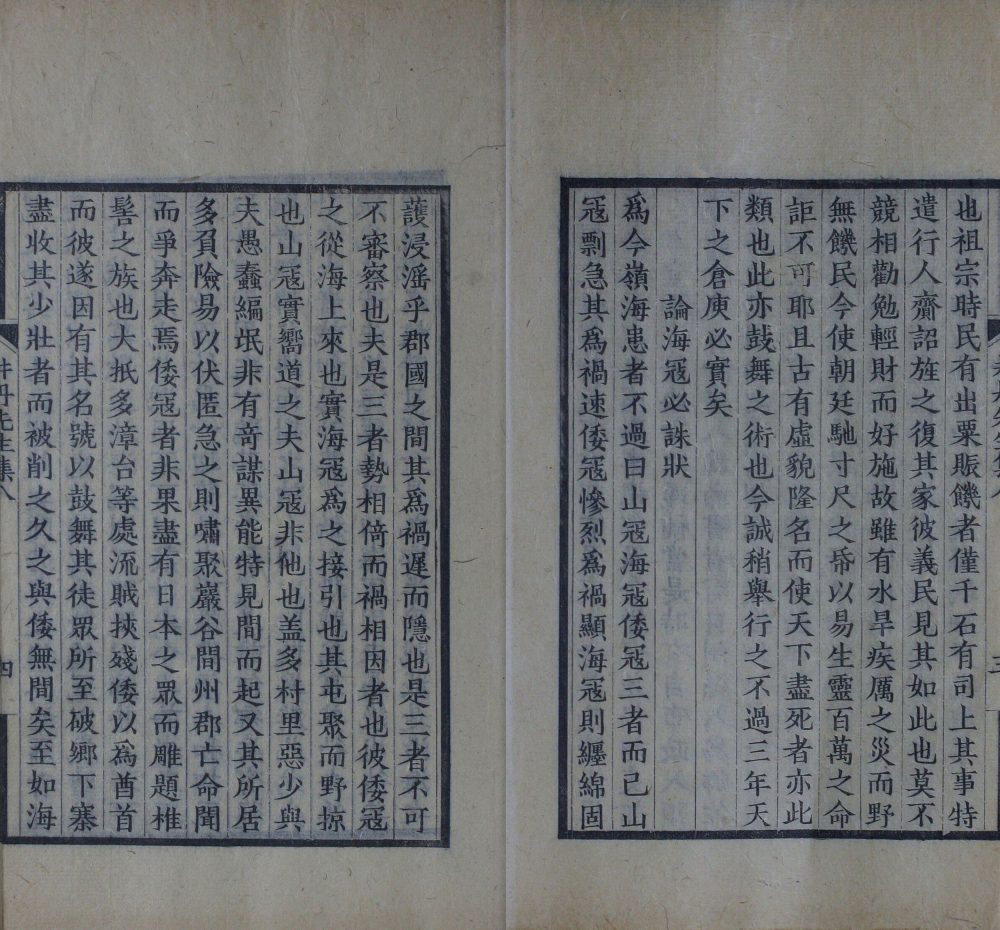 也祖宗時民有出粟賑饑者僅千石有司上其事特
遣行人齎詔旌之復其家彼義民見其如此也莫不
競相勸勉輕財而好施故雖有水旱疾厲之災而野
無饑民今使朝廷馳寸尺之帋以易生靈百萬之命
詎不可耶且古有虛貌隆名而使天下盡死者亦此
類也此亦鼓舞之術也今誠稍舉行之不過三年天
下之倉庾必實矣
論海寇必誅狀
爲今嶺海患者不過曰山寇海寇倭寇三者而已山
寇剽急其爲禍速倭寇慘烈爲禍顯海寇則纏綿固
護浸滛乎郡國之間其爲禍遲而隱也是三者不可
不審察也夫是三者勢相倚而禍相因者也彼倭寇
之從海上來也實海寇爲之接引也其屯聚而野掠
也山寇實嚮道之夫山寇非他也盖多村里惡少與
夫愚蠢編氓非有奇謀異能特見間而起又其所居
多負險易以伏匿急之則嘯聚巖谷間州郡亡命聞
而爭奔走焉倭寇者非果盡有日本之眾而雕題椎
髻之族也大抵多漳台等處流賊挾殘倭以爲酋首
而彼遂因有其名號以鼓舞其徒眾所至破鄉下寨
盡收其少壯者而被削之久之與倭無間矣至如海
井丹先生集八
四